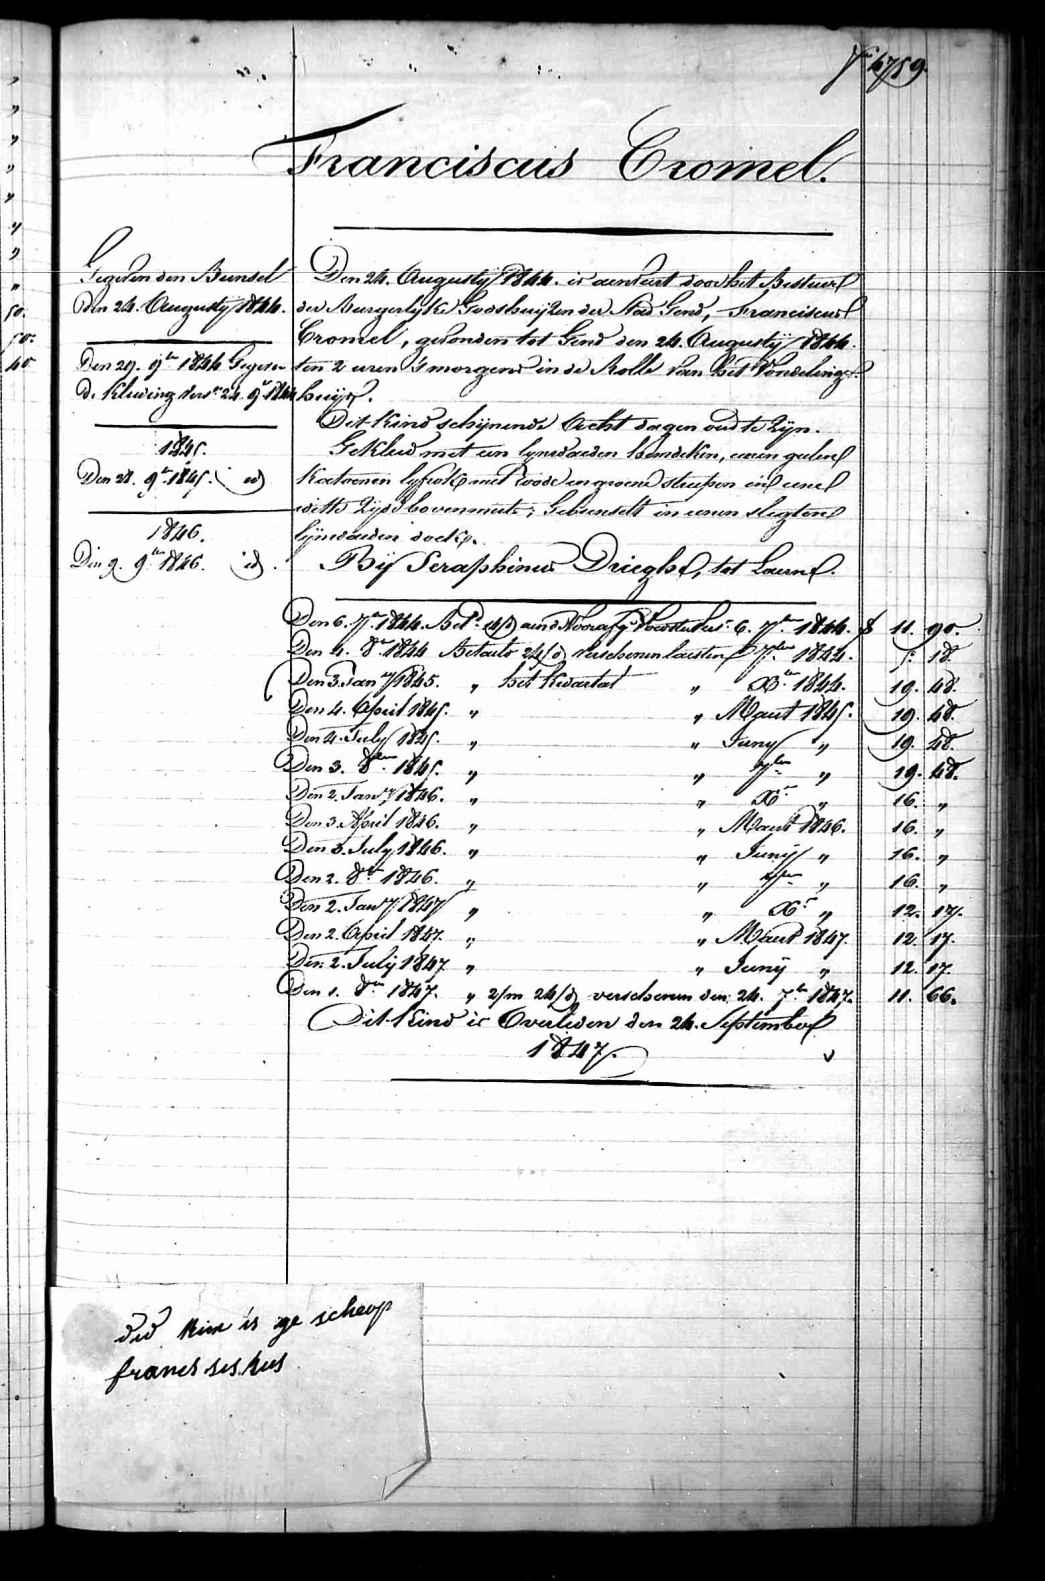 N° 6759.
Franciscus Cromel.
Gegeven den Bunsel
den 24. Augusty 1844.
Den 29. 9ber 1844 Gegeven
de Kleeding vers. 24. 9r 1844
1845.
Den 28. 9br 1845. id
1846.
Den 9. 9ber 1846. id.
Den 24. Augusty 1844. is aenveert door het Bestuer
der Burgerlyke Godshuyzen der Stad Gend, Franciscus
Cromel, gevonden tot Gend den 24. Augustÿ 1844.
ten 2 uren 's morgens in de Rolle van het Vondelings-
huys.
Dit Kind schynende Acht dagen oud te Zyn.
Gekleed met een lynwaeden hemdeken, eenen geelen
Katoenen lyfrok met Roode en groene streepen en eene
witte Zyde bovenmuts; Gebunselt in eenen slegten
lynwaeden doek.
Bÿ Seraphinus Drieghe, tot Laerne.
Den 6. 7br 1844. Betd 14/d aend Noorafg Voorstuks 6. 7ber 1844. f 11. 90.
Den 4. 8br 1844 Betaelt 24/d verschenen laesten 7ber 1844. 5: 18.
Den 3. Jany 1845. " het Kwartal " Xber 1844. 19. 48.
Den 4. April 1845. " " Maert 1845. 19. 48.
Den 4. July 1845. " " Juny " 19. 48.
Den 3. 8ber 1845. " " 7ber " 19. 48.
Den 2. Jany 1846. " " Xr " 16. "
Den 3. April 1846. " " Maert 1846. 16. "
Den 3. July 1846. " " Juny " 16. "
Den 2. 8br 1846. " " 7ber " 16. "
Den 2. Jany 1847 " " Xr " 12. 17.
Den 2. April 1847. " " Maert 1847. 12. 17.
Den 2. Julÿ 1847 " " Junÿ " 12. 17.
Den 1. 8br 1847. " 2/m 24/d verschenen den 24. 7br 1847. 11. 66.
Dit Kind is Overleden den 24. September
1847.
did kint is ge scheop
francs ses kus